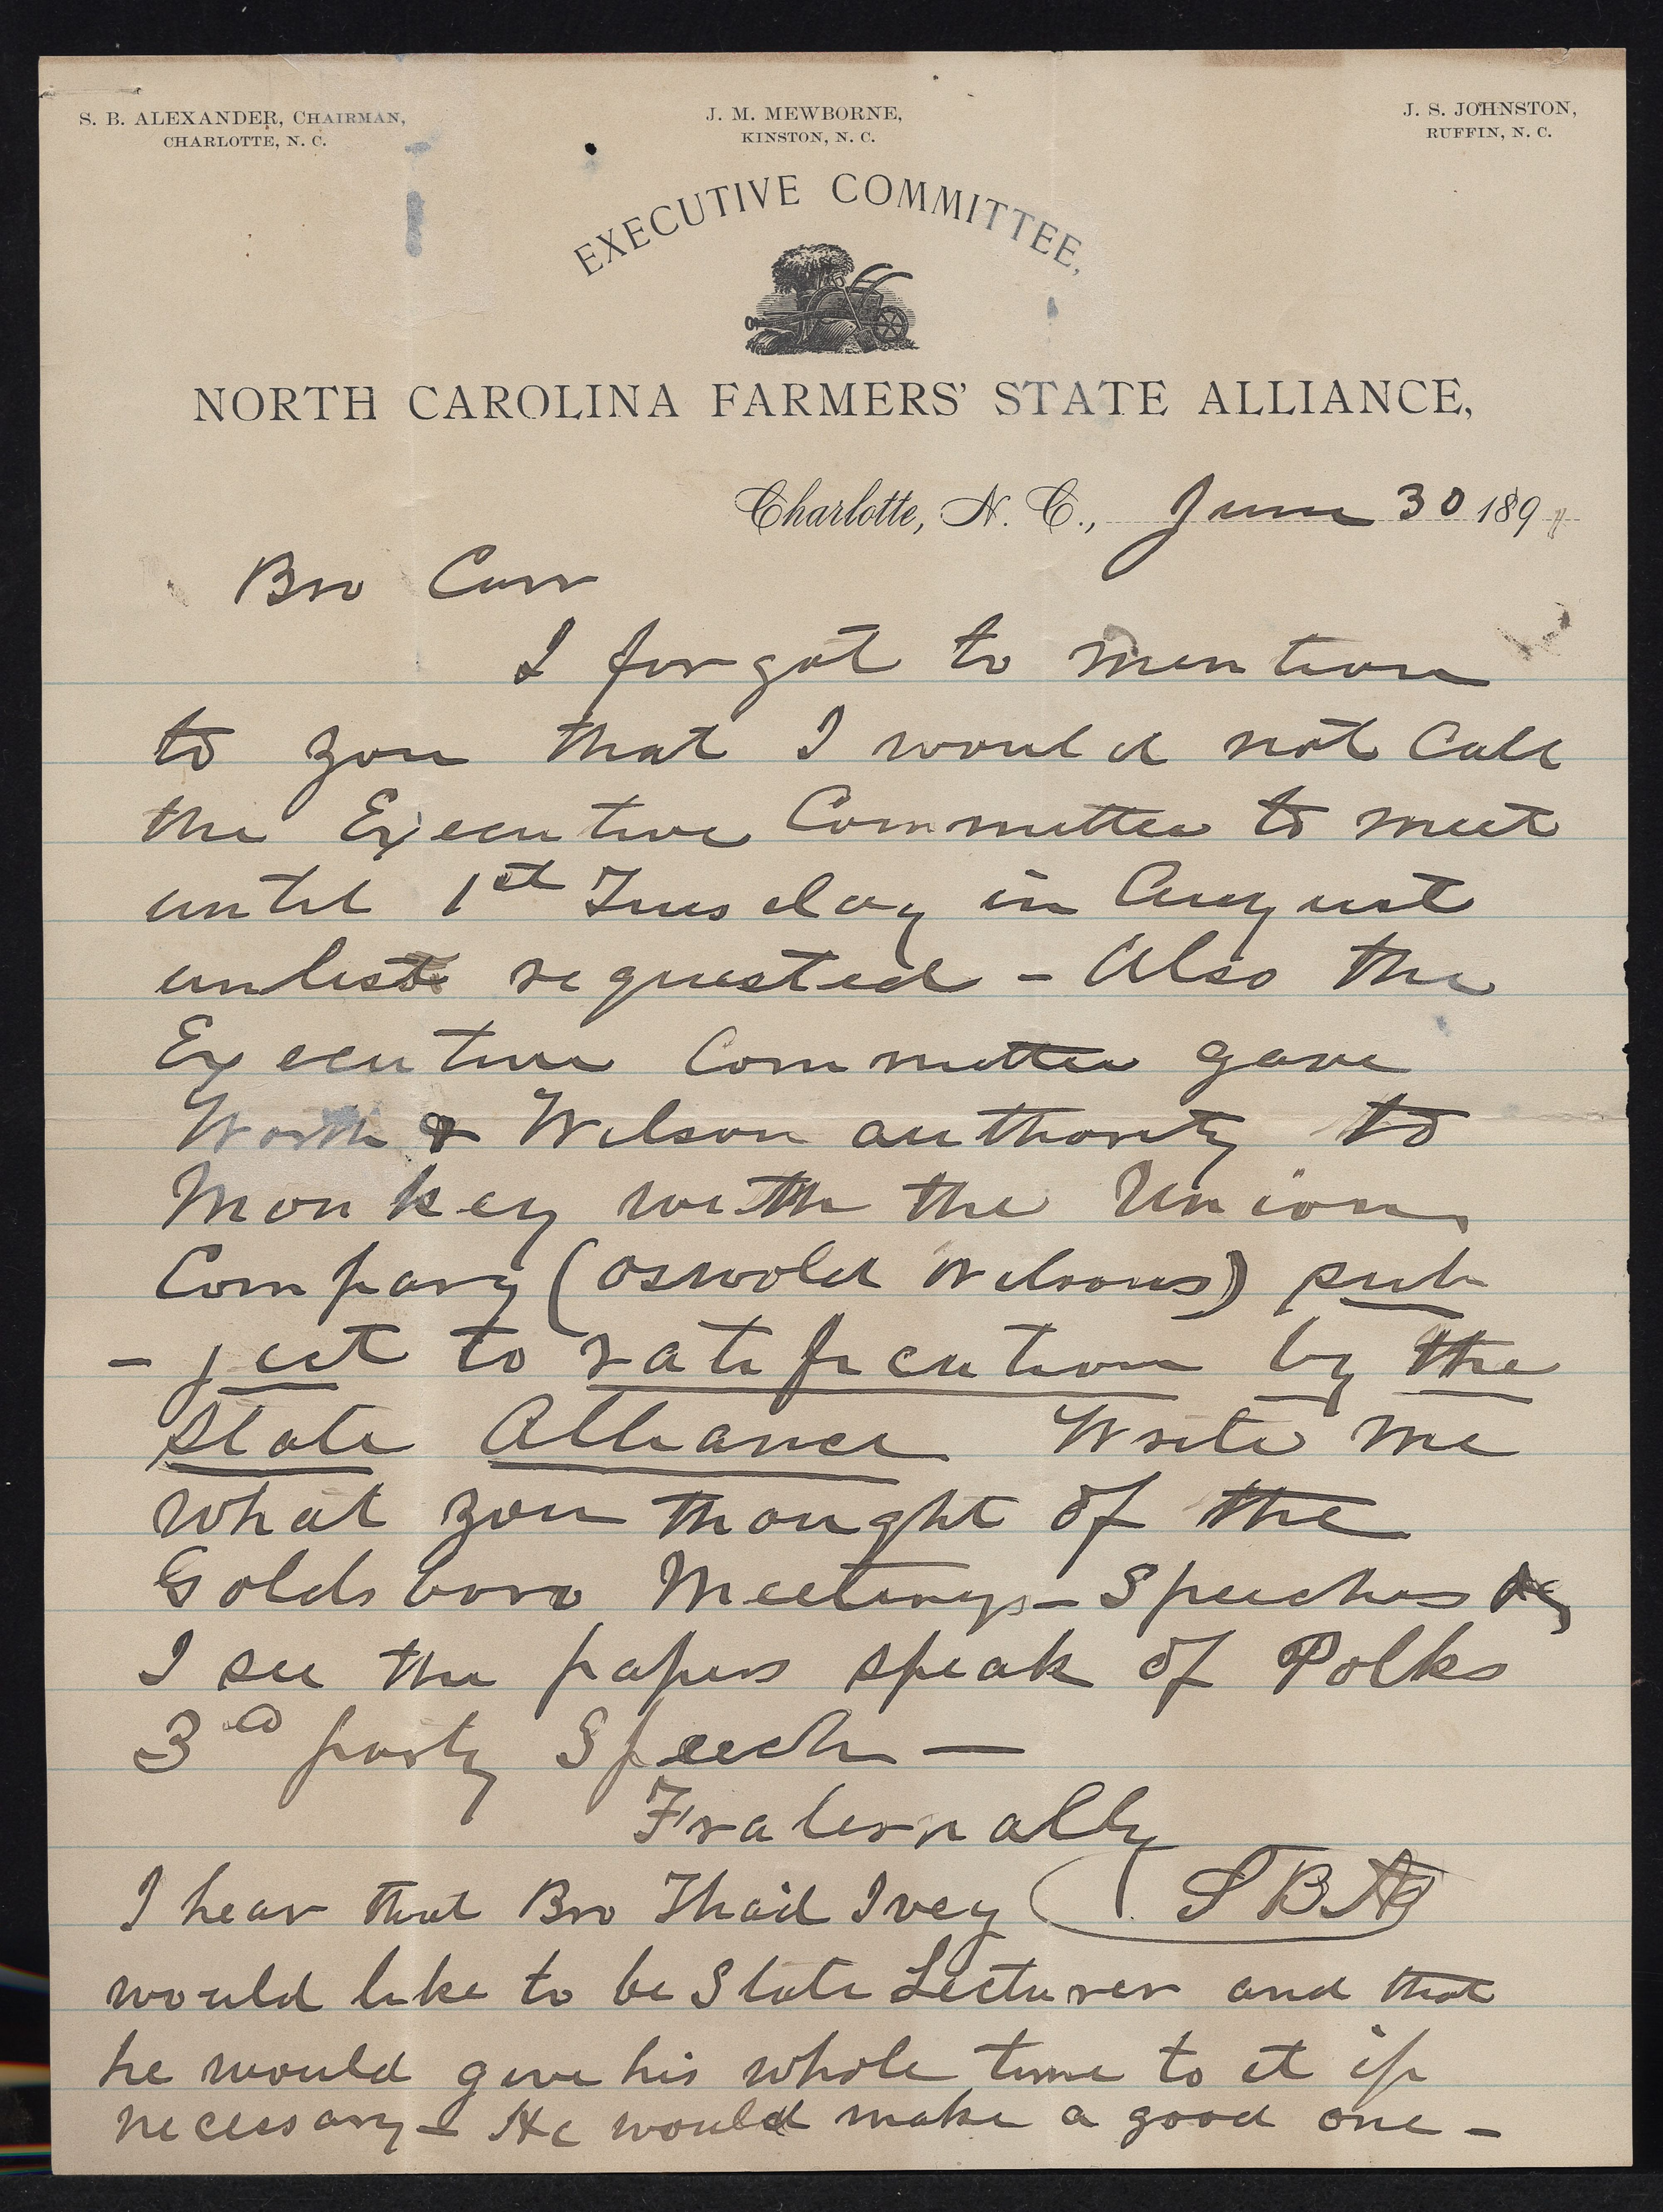 S. B. ALEXANDER, CHAIRMAN,
CHARLOTTE, N. C.
J. M. MEWBORNE,
KINSTON, N. C.
J. S. JOHNSTON,
RUFFIN, N. C.
EXECUTIVE COMMITTEE,
NORTH CAROLINA FARMERS' STATE ALLIANCE,
Charlotte, N. C., June 30 189
Bro Carr
I forgot to mention
to you that I would not call
the Executive Committee to meet
until 1st Tuesday in August
unless requested - Also the
Executive Committee gave
Worth & Wilson authority to
Monkey with the Union
Company (Oswold Wilsons) sub
- ject to ratification by the
State Alliance Write me
what you thought of the
Goldsboro Meetings - Speeches &c
I see the papers speak of Polks
3d party Speech —
Fraternally
SBA
I hear that Bro Thad Ivey
would like to be State Lecturer and that
he would give his whole time to it if
necessary - He would make a good one -